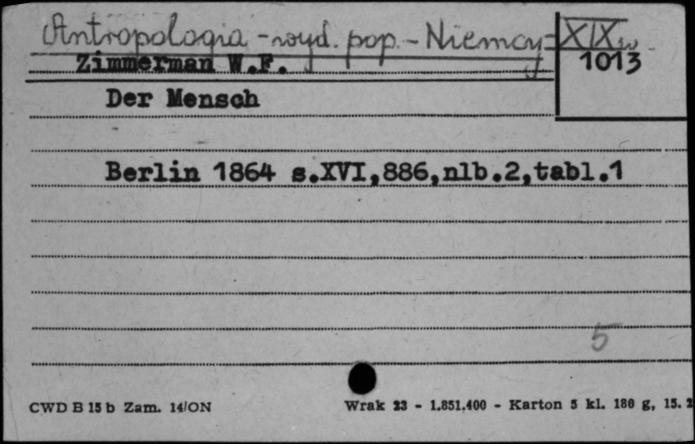 Antropologia - wyd. pop. - Niemcy - XIX w.
Zimmerman W.F.
1013
Der Mensch
Berlin 1864 s.XVI,886,nlb.2,tabl.1
5
CWD B 15 b Zam. 14/ON
Wrak 23 - 1.851.400 - Karton 5 kl. 180 g, 15.2